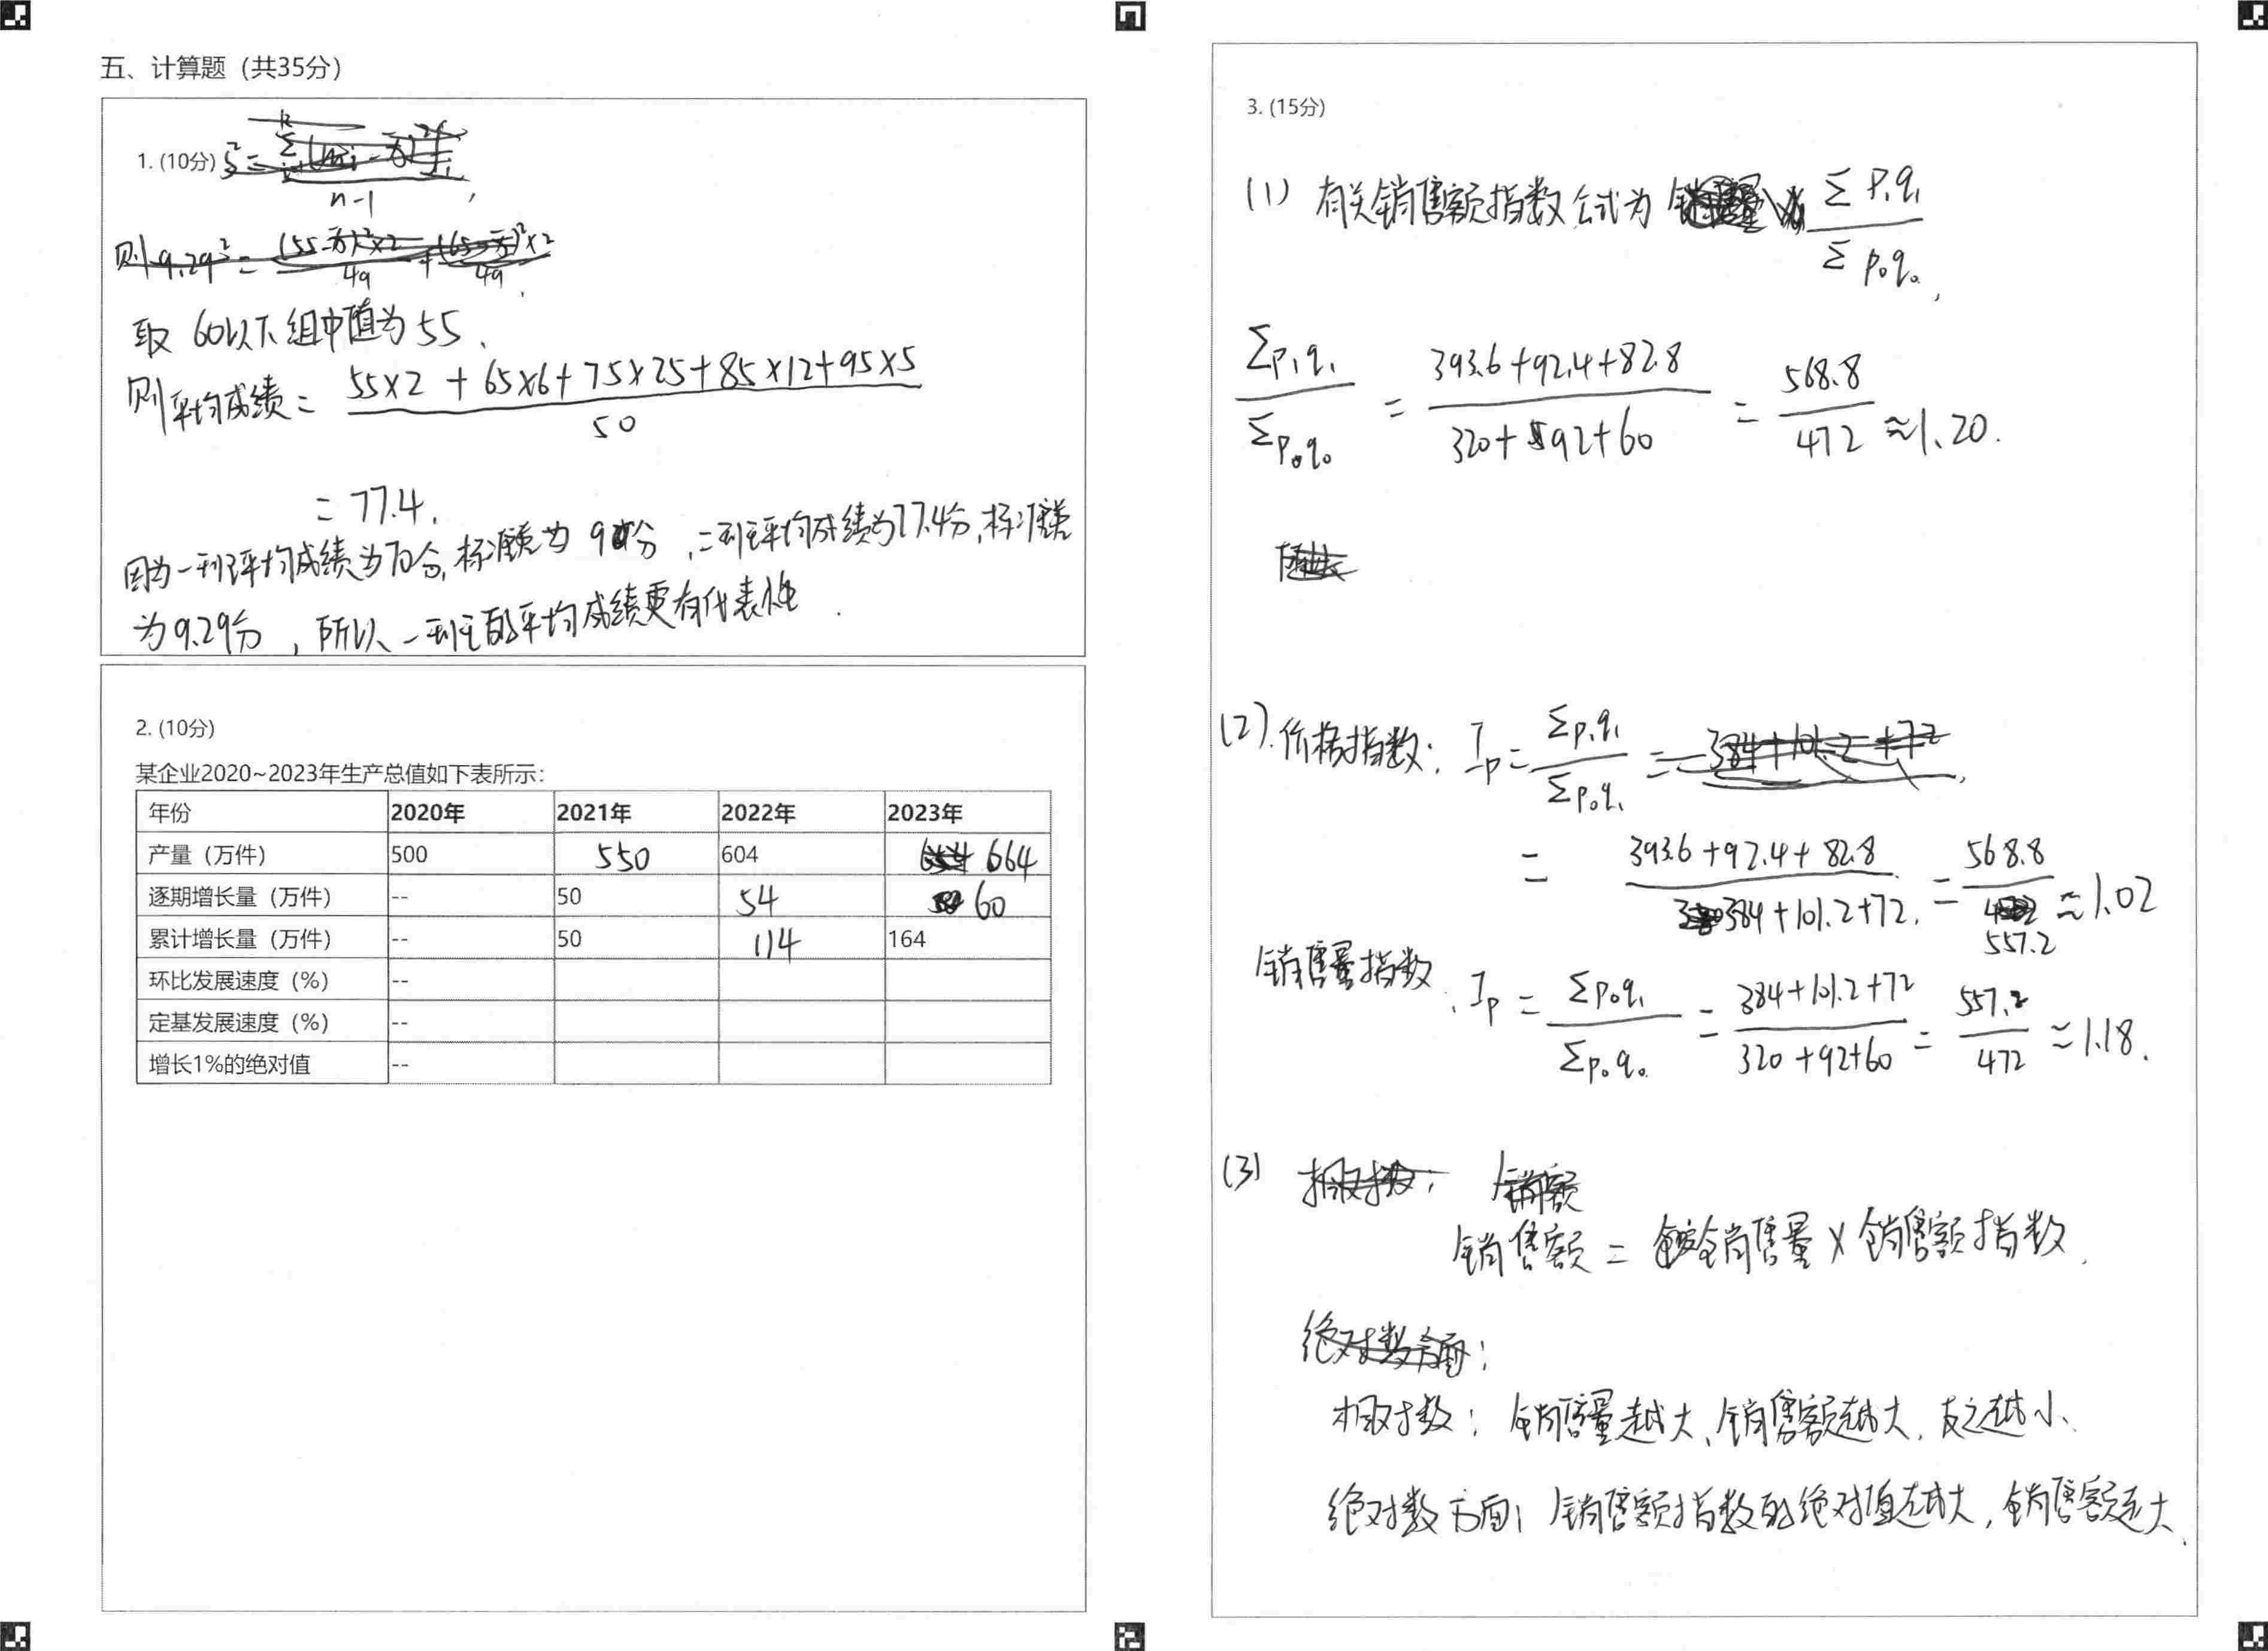 五、计算题（共35分）
1. (10分)
n-1
取 60以下组中值为55、
则平均成绩= 55×2 + 65×6+75×25+85×12+95×5
50
= 77.4.
因为一班平均成绩为70分,标准差为 9分,二班平均成绩为77.4分,标准差
为9.29分，所以一班的平均成绩更有代表性.
2. (10分)
某企业2020~2023年生产总值如下表所示：
年份 2020年 2021年 2022年 2023年
产量（万件） 500 550 604 664
逐期增长量（万件） -- 50 54 60
累计增长量（万件） -- 50 114 164
环比发展速度（%） --
定基发展速度（%） --
增长1%的绝对值 --
3. (15分)
(1) 有关销售额指数公式为 Σp₁q₁
Σp₀q₀,
Σp₁q₁ = 393.6+92.4+82.8 = 568.8 ≈1.20.
Σp₀q₀ 320+92+60 472
(2).价格指数: Ip= Σp₁q₁ =
Σp₀q₁
= 393.6+92.4+82.8 = 568.8 ≈1.02
384+101.2+72. 557.2
销售量指数: Ip = Σp₀q₁ = 384+101.2+72 = 557.2 ≈1.18.
Σp₀q₀ 320+92+60 472
(3)
销售额 = 销售量×销售额指数.
相对数: 销售量越大、销售额越大, 反之越小、
绝对数方面: 销售额指数的绝对值越大, 销售额越大.